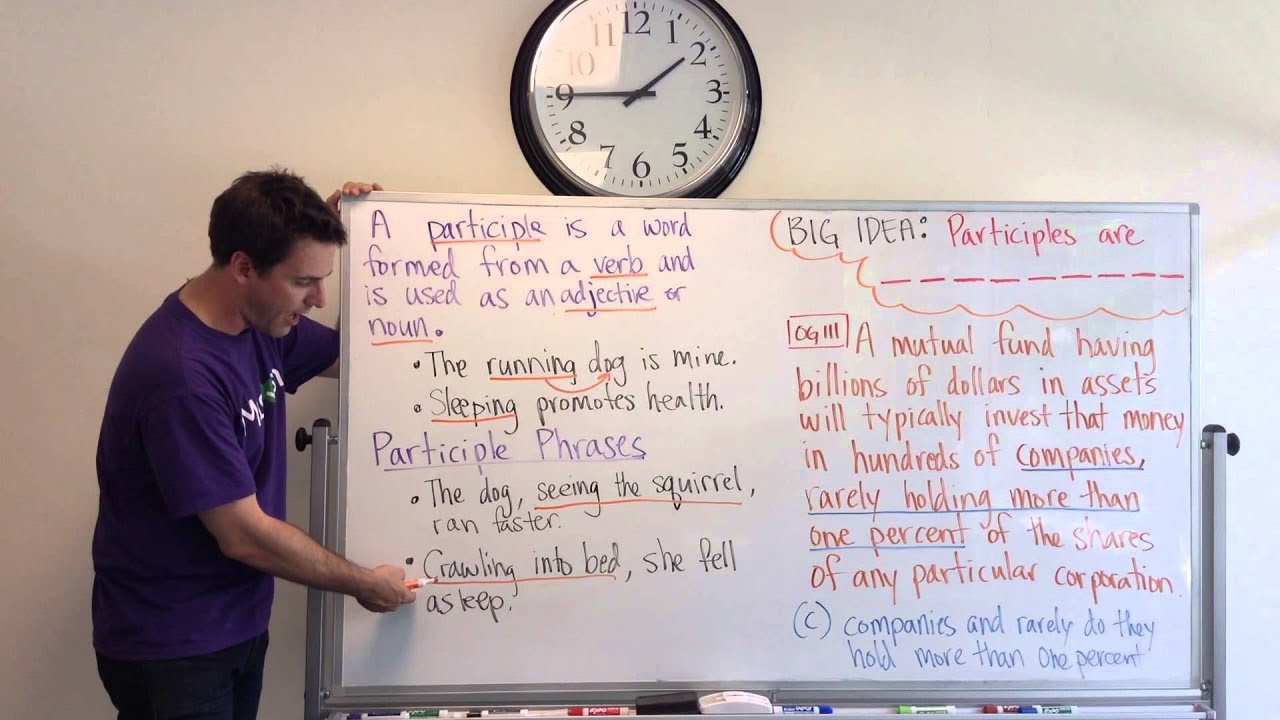 12
1
2
3
4
5
6
7
8
9
10
11
A participle is a word
formed from a verb and
is used as an adjective or
noun.
• The running dog is mine.
• Sleeping promotes health.
Participle Phrases
• The dog, seeing the squirrel,
ran faster.
• Crawling into bed, she fell
asleep.
BIG IDEA: Participles are
_ _ _ _ _ _ _ _ _
OG 111 A mutual fund having
billions of dollars in assets
will typically invest that money
in hundreds of companies,
rarely holding more than
one percent of the shares
of any particular corporation.
(C) companies and rarely do they
hold more than one percent
EXPO